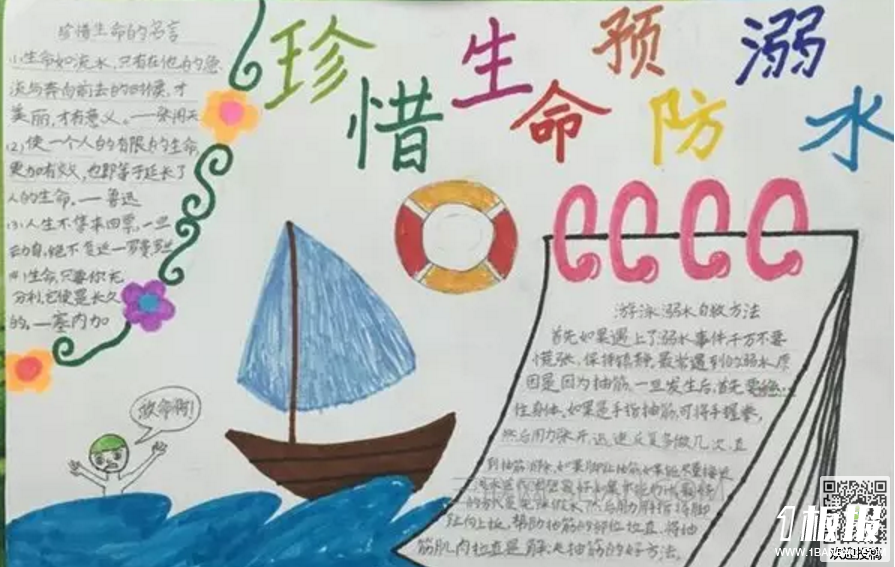 珍惜生命 预防溺水
珍惜生命的名言
(1)生命如流水,只有在他的急
流与奔向前去的时候,才
美丽,才有意义。——张闻天
(2)使一个人的有限的生命,
更加有效,也即等于延长了
人的生命。——鲁迅
(3)人生不售来回票,一旦
动身,绝不复返——罗曼罗兰
生命,只要你充
分利,它便是长久
的。——塞内加
救命啊!
游泳溺水自救方法
首先如果遇上了溺水事件千万不要
慌张,保持镇静,最常遇到的溺水原
因是因为抽筋,一旦发生后,首先要
住身体,如果是手指抽筋,可将手握拳,
然后用力张开,迅速反复多做几次,直
到抽筋消失,如果脚趾抽筋
然后用
趾向上扳,帮助抽筋的部位拉直,将抽
筋肌肉拉直是解决抽筋的好方法。
1板报
WWW.1BANBAO.COM
欢迎投稿